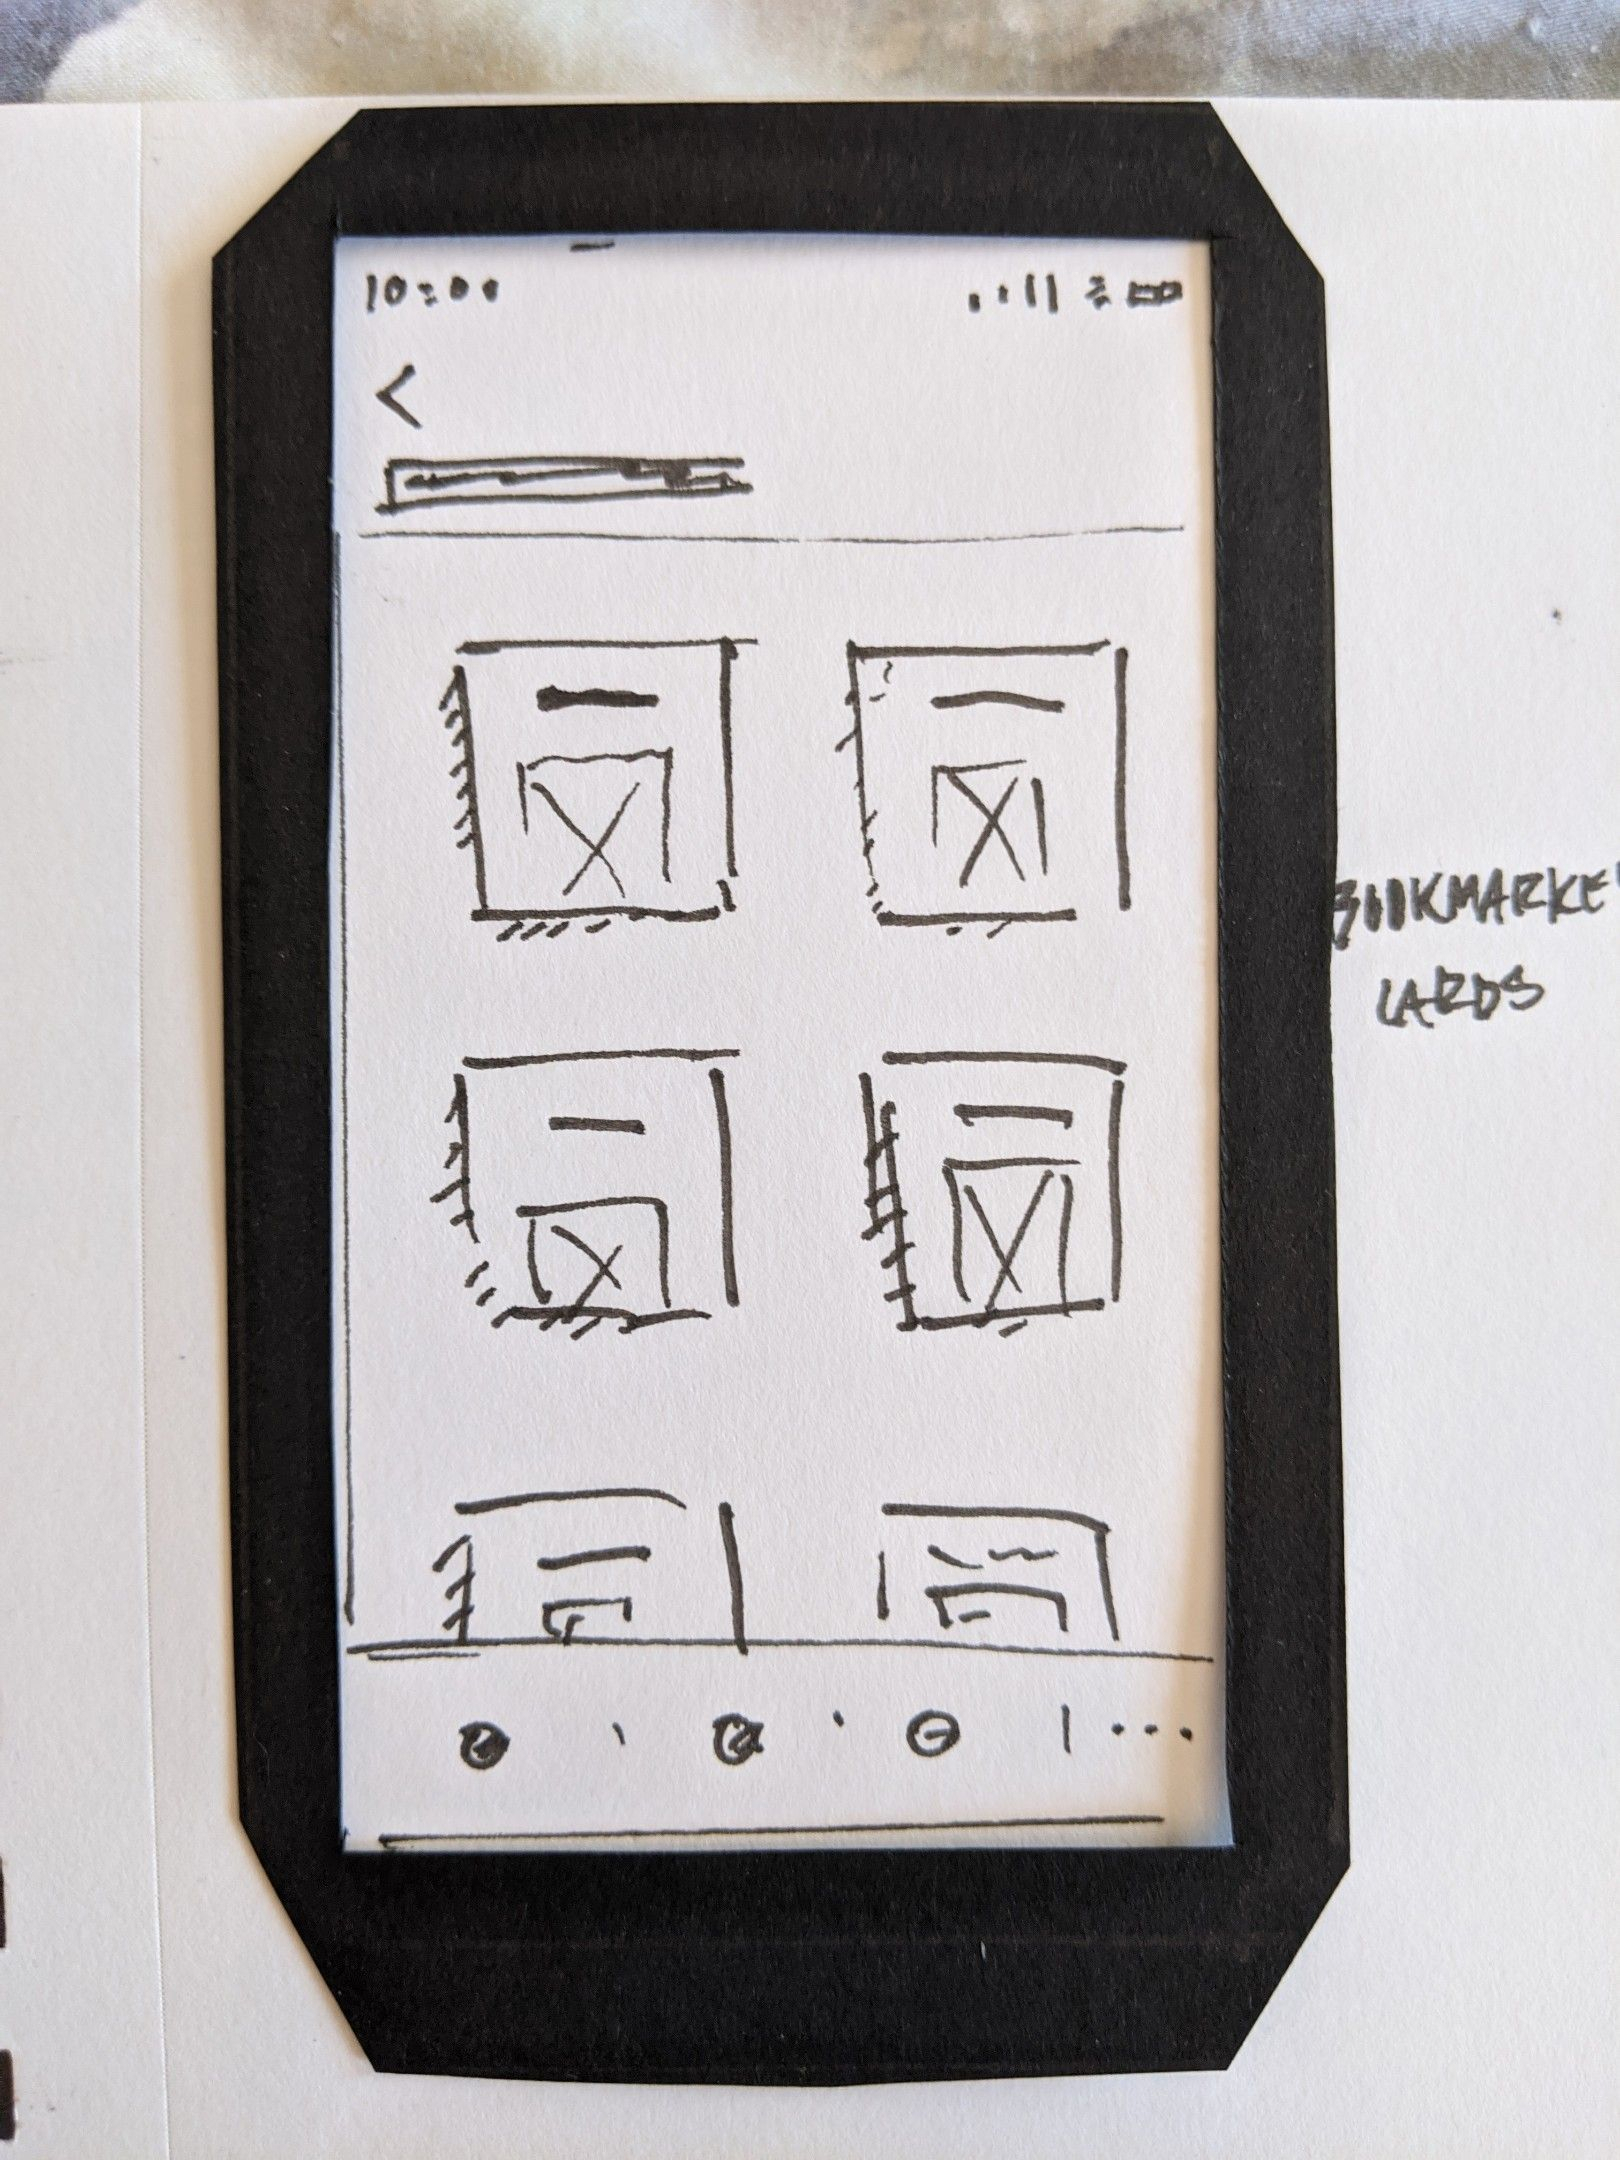 10:00
<
BOOKMARKE
CARDS